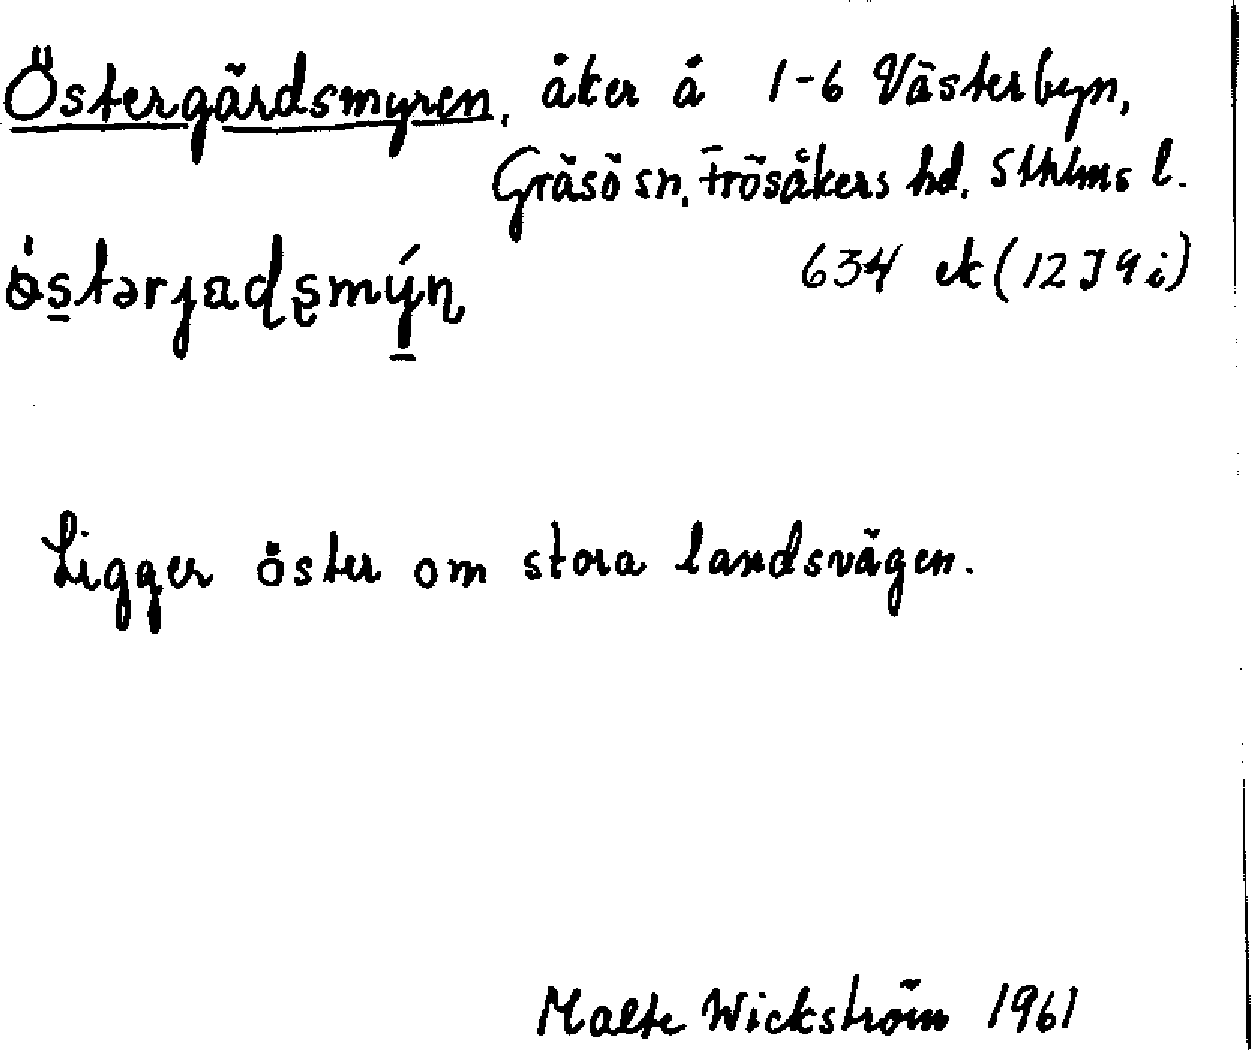 Östergärdsmyren, åker å 1-6 Västerbyn,
Gräsö sn, Frösåkers hd. Sthlms l.
634 ek (12 I 9 i)
Ligger öster om stora landsvägen.
Malte Wickström 1961